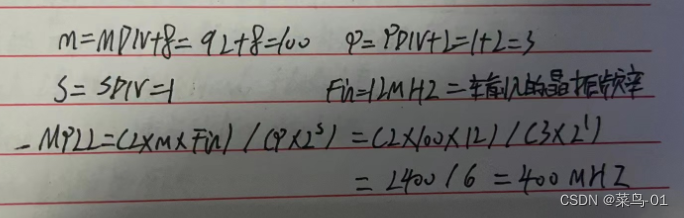 m=MDIV+8=92+8=100 P=PDIV+2=1+2=3
S=SDIV=1 Fin=12MHZ=输入的晶振频率
-MPLL=(2×m×Fin)/(P×2^S)=(2×100×12)/(3×2^1)
=2400/6=400MHZ
CSDN @菜鸟-01